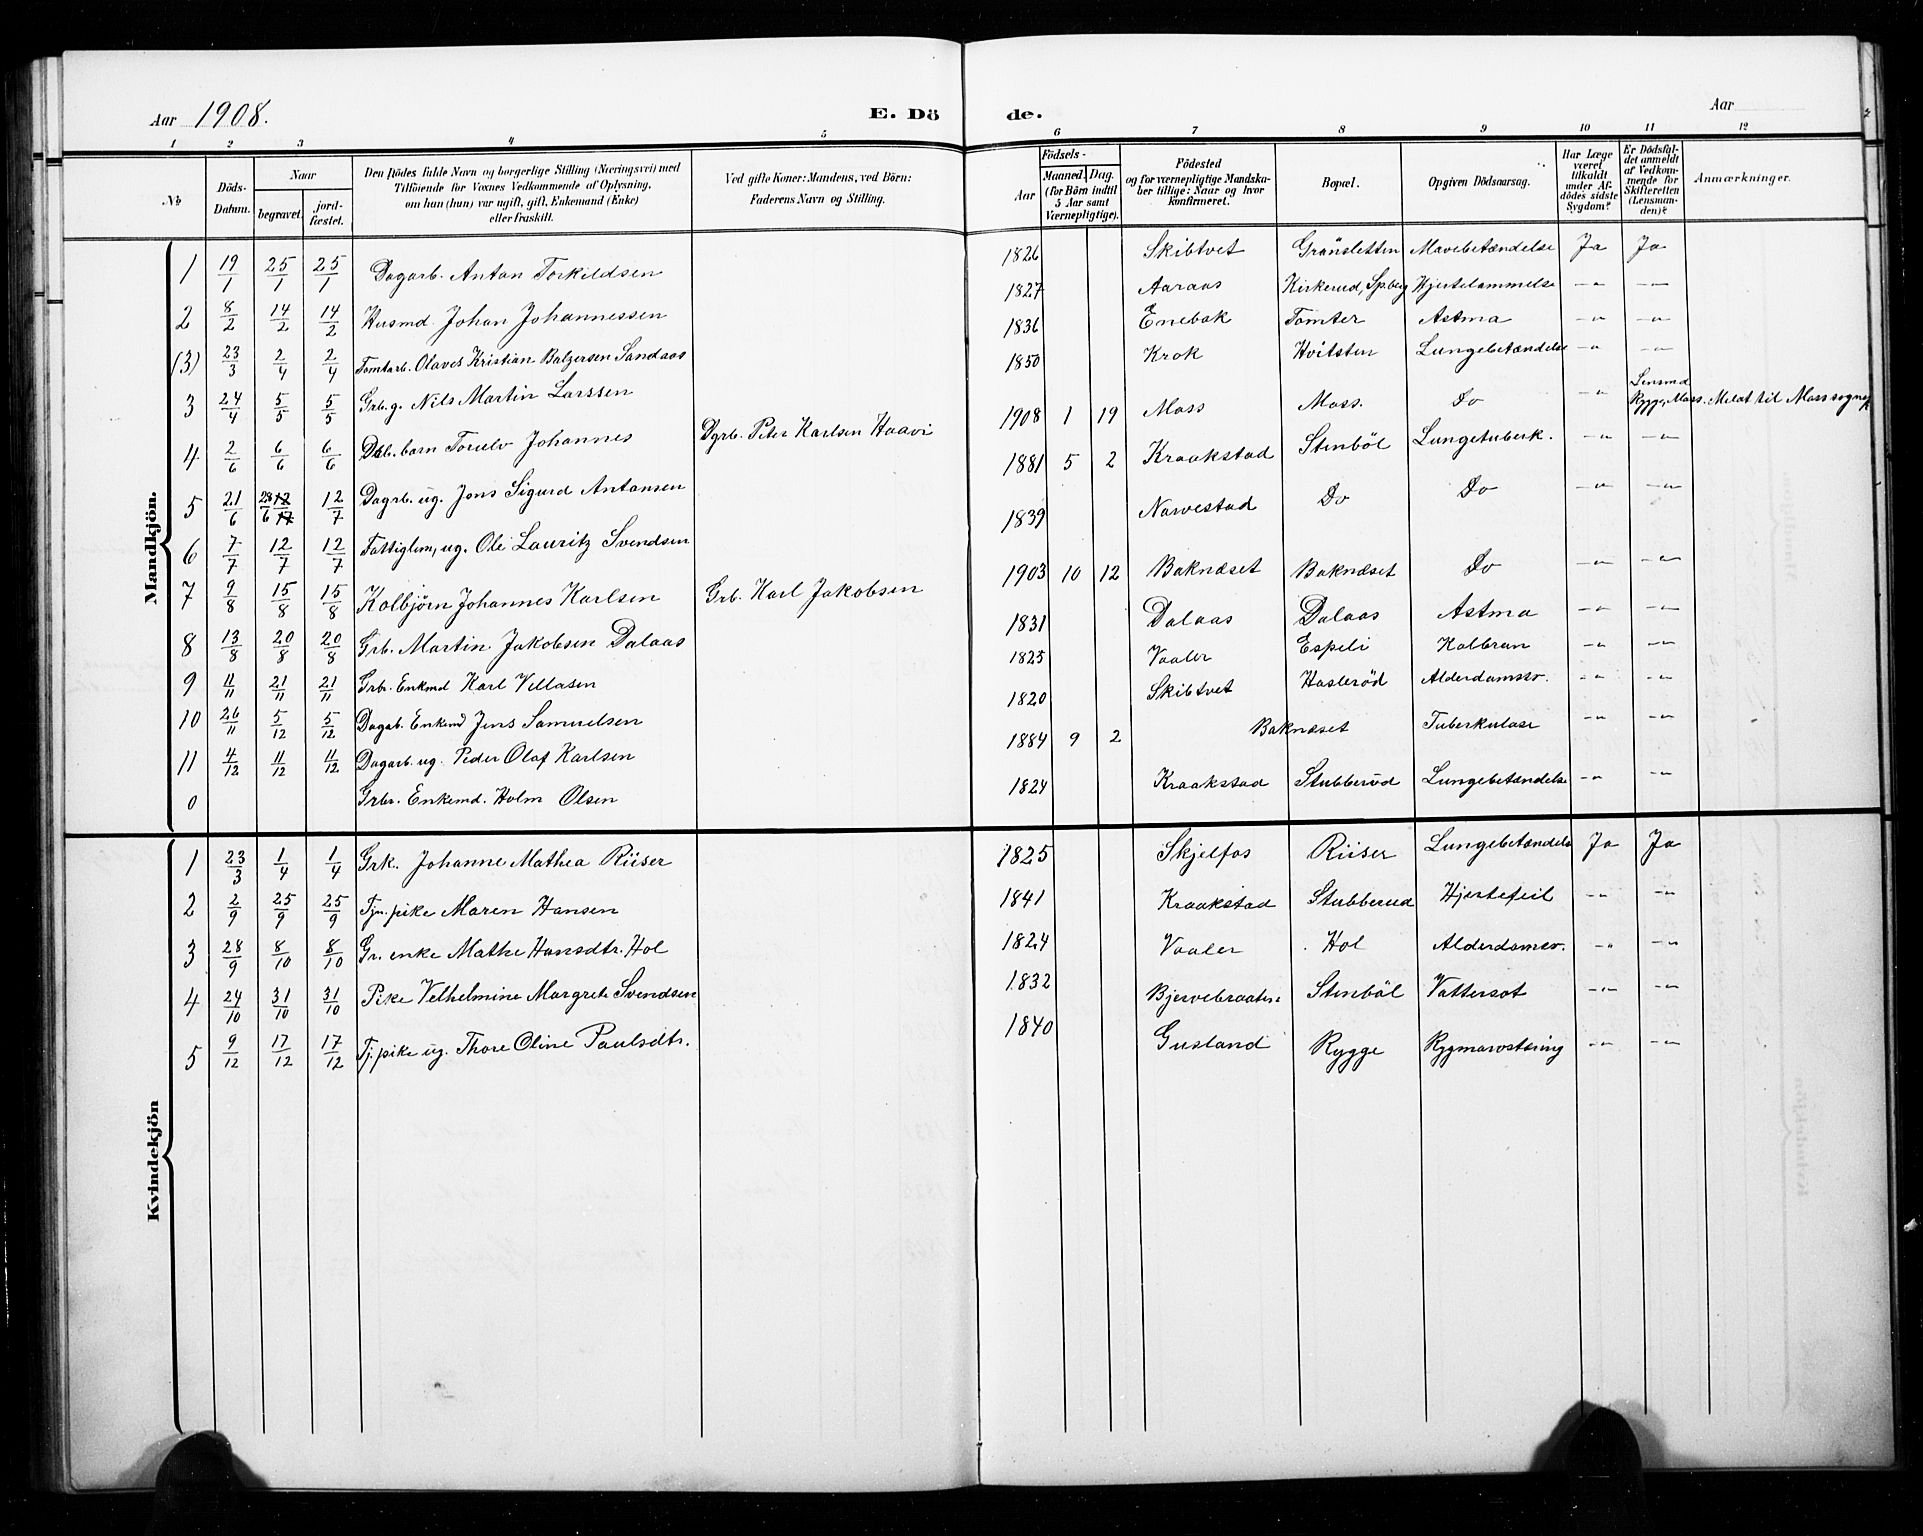 Aar 1908. E. Dö de. Aar
1 2 3 4 5 6 7 8 9 10 11 12
No
Döds-Datum.
Naar
begravet.
jordfæstet.
Den Dödes fulde Navn og borgerlige Stilling (Næringsvei) med
Tilföiende for Voxnes Vedkommende af Oplysning,
om han (hun) var ugift, gift, Enkemand (Enke)
eller fraskilt.
Ved gifte Koner: Mandens, ved Börn:
Faderens Navn og Stilling.
Födsels-
Aar
Maaned. Dag.
(for Börn indtil
5 Aar samt
Værnepligtige).
Födested
og for værnepligtige Mandskaber tillige: Naar og hvor
konfirmeret.
Bopæl.
Opgiven Dödsaarsag.
Har Læge
været
tilkaldt
under Afdödes sidste
Sygdom?
Er Dödsfaldet anmeldt
af Vedkommende for
Skifteretten
(Lensmanden)?
Anmærkninger.
Mandkjön.
1 19/1 25/1 25/1 Dagarb. Anton Torkildsen 1826 Skibtvet Gränsletten Mavebetændelse Ja Ja
2 8/2 14/2 14/2 Husmd. Johan Johannessen 1827 Aaraas Kirkerud, Spberg Hjertelammelse -"- -"-
(3) 23/3 2/4 2/4 Tomtarb. Olaves Kristian Balzersen Sandaas 1836 Enebak Tomter Astma -"- -"-
3 24/4 5/5 5/5 Grb.g. Nils Martin Larssen 1850 Krok Hvitsten Lungebetændelse -"- -"-
4 2/6 6/6 6/6 Dgb. barn Torulv Johannes Dgrb. Peter Karlsen Haavi 1908 1 19 Moss Moss. Do -"- Lensmd Rygge, Moss. Melat til Moss sognep
5 21/6 28/6 12/7 12/7 Dagrb. ug. Jens Sigurd Antonsen 1881 5 2 Kraakstad Stenböl Lungetuberk. -"- -"-
6 7/7 12/7 12/7 Fattiglem, ug. Ole Lauritz Svendsen 1839 Navestad Do Do -"- -"-
7 9/8 15/8 15/8 Kolbjörn Johannes Karlsen Grb. Karl Jakobsen 1903 10 12 Baknæset Baknæset Do -"- -"-
8 13/8 20/8 20/8 Grb. Martin Jakobsen Dalaas 1831 Dalaas Dalaas Astma -"- -"-
9 11/11 21/11 21/11 Grbr. Enkmd Karl Villasen 1825 Vaaler Espeli Kolbran -"- -"-
10 26/11 5/12 5/12 Dagab. Enkemd Jens Samuelsen 1820 Skibtvet Haslerød Alderdomssv. -"- -"-
11 4/12 11/12 11/12 Dagarb. ug. Peder Olaf Karlsen 1884 9 2 Baknæset Tuberkulose -"- -"-
0 Grbr. Enkemd. Holm Olsen 1824 Kraakstad Stubberud Lungebetændelse -"- -"-
Kvindekjön
1 23/3 1/4 1/4 Grk. Johanne Mathea Riiser 1825 Skjelfos Riiser Lungebetændels Ja Ja
2 2/9 25/9 25/9 Tjn. pike Maren Hansen 1841 Kraakstad Stubberud Hjertefeil -"- -"-
3 28/9 8/10 8/10 Gr. enke Mathe Hansdtr. Hol 1824 Vaaler Hol Alderdomsv. -"- -"-
4 24/10 31/10 31/10 Pike Velhelmine Margrete Svendsen 1832 Bjervebraaten Stenböl Vattersot -"- -"-
5 9/12 17/12 17/12 Tj. pike ug. Thore Oline Paulsdtr. 1840 Gusland Rygge Rygmarvstæring -"- -"-